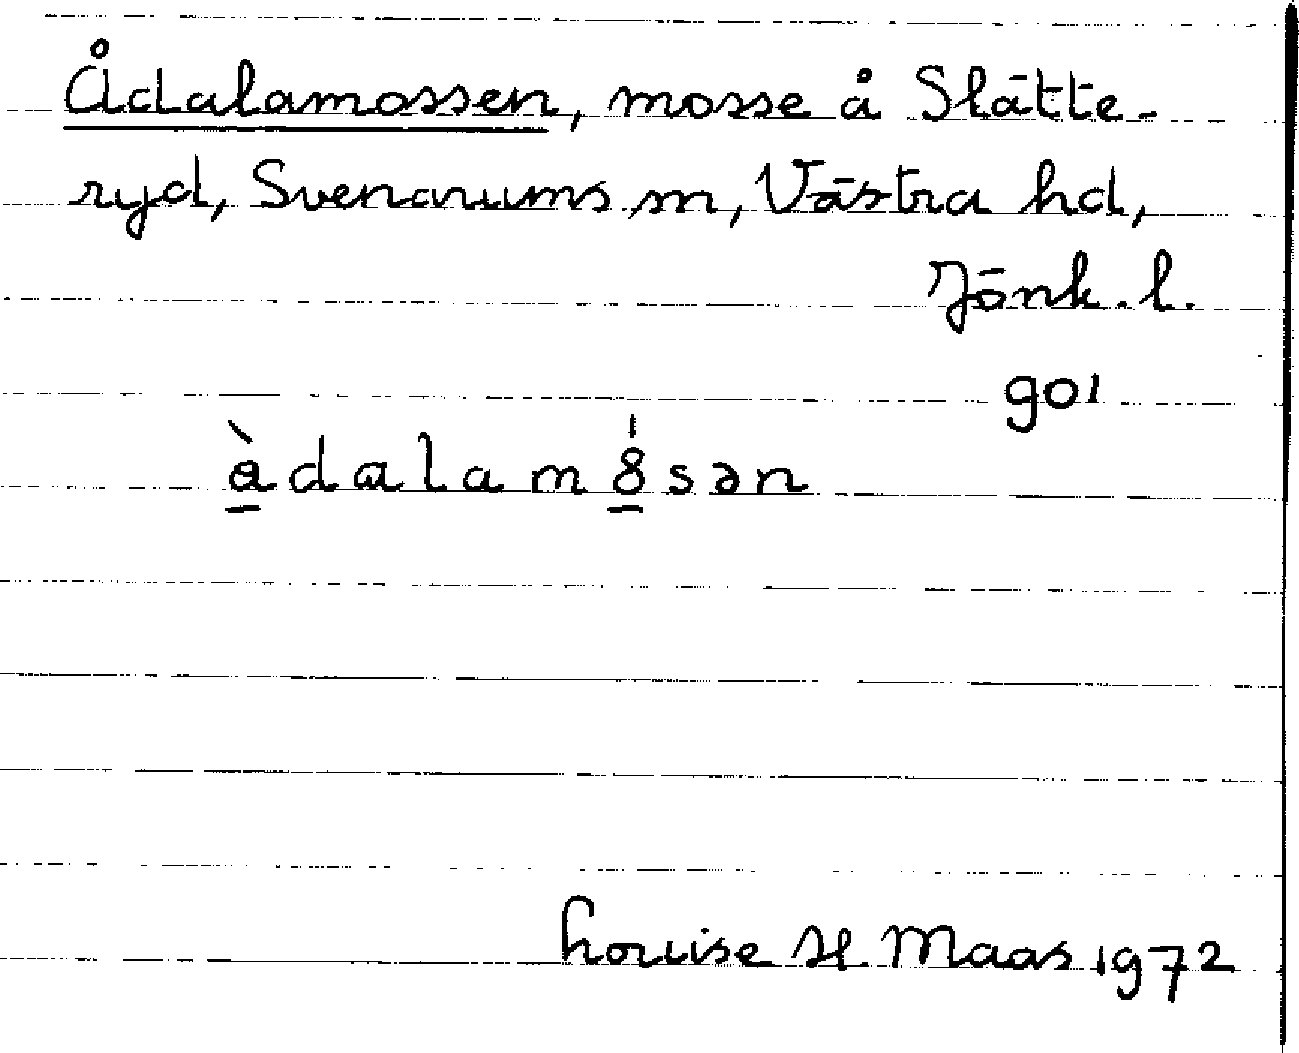 Ådalamossen, mosse å Slätte-
ryd, Svenarums sn, Västra hd,
Jönk. l.
901
àdalamȯsən
Louise H Maas 1972